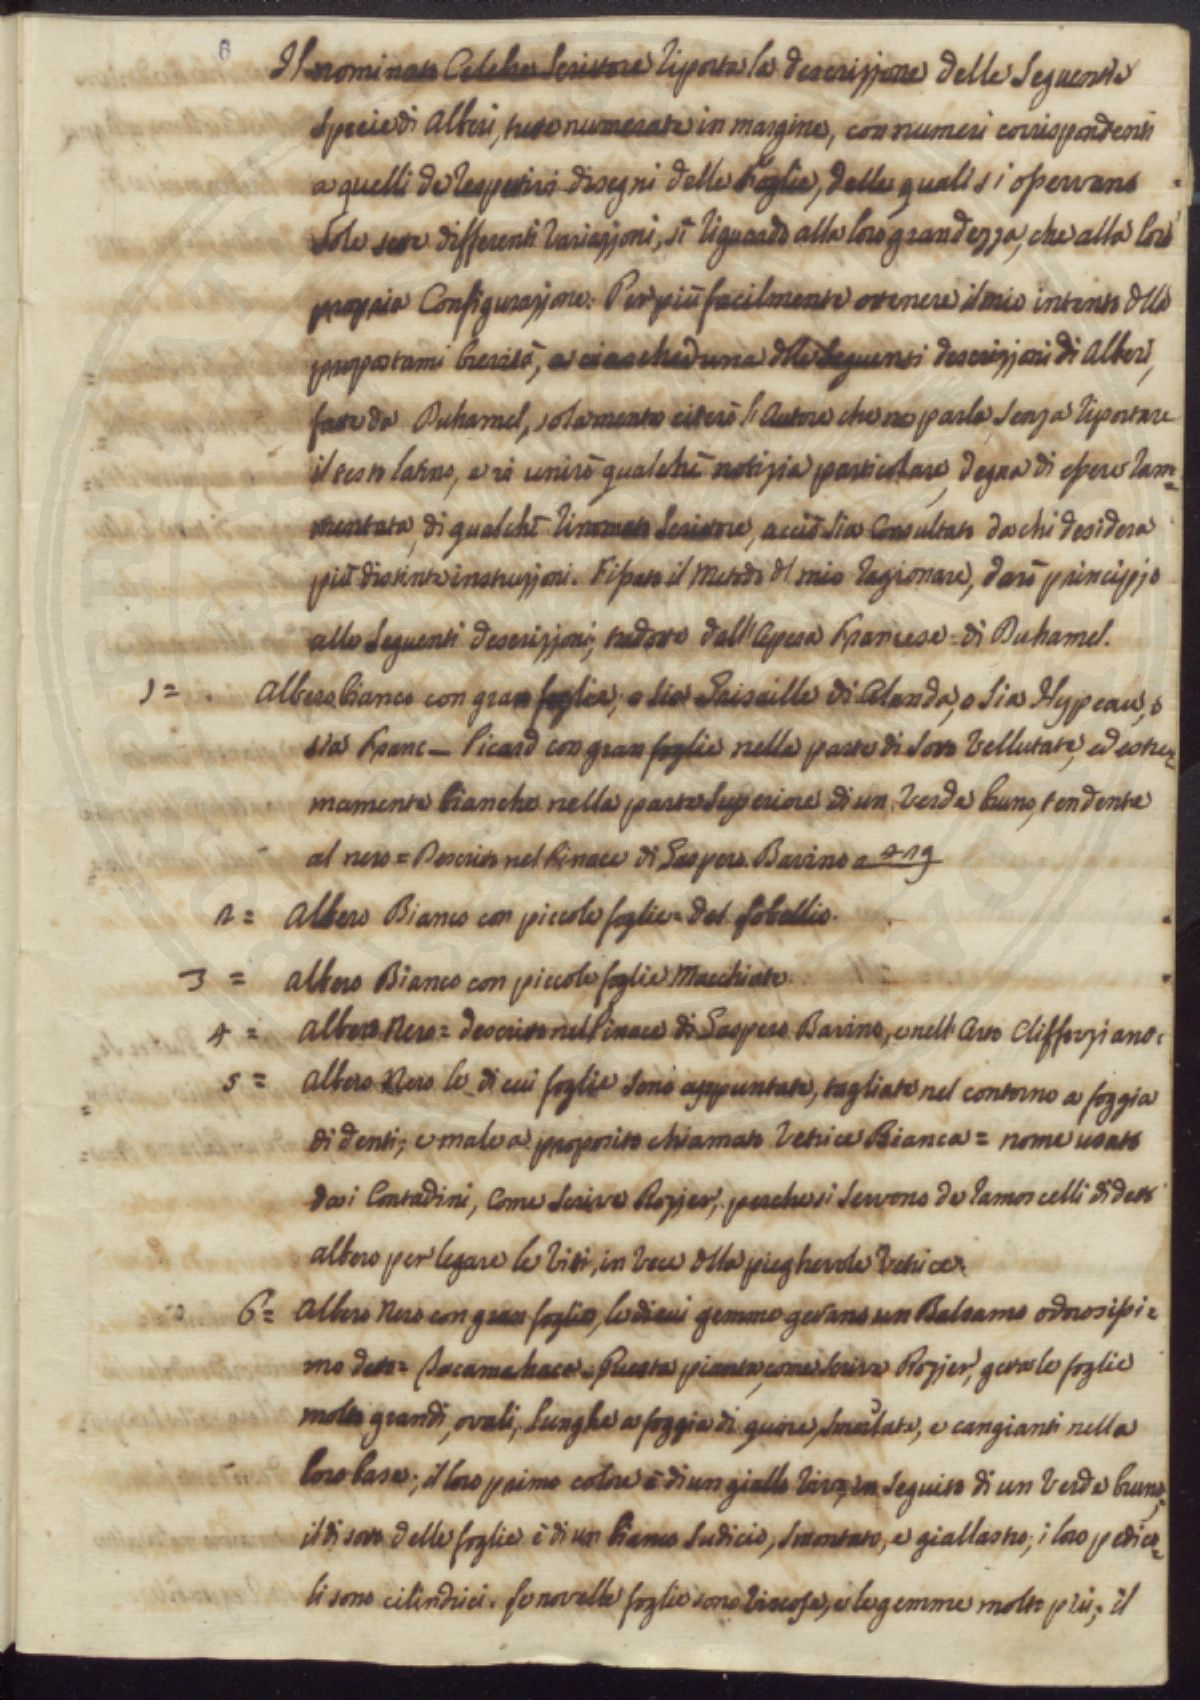 6
Il nominato Celebre Scrittore riporta la descrizzione delle Seguenti
Specie di Alberi, tutte numerate in margine, con numeri corrispondenti
a quelli de respettivi disegni delle Foglie, delle quali si osservano
Sole sette differenti variazzioni, sì riguardo alla loro grandezza, che alla loro
propria Configurazzione. Per più facilmente ottenere il mio intento dlla
propostami brevità, a ciascheduna dlle Seguenti descrizzioni di Alberi,
fatte da Duhamel, solamente citerò l'Autore che ne parla, senza riportare
il testo latino, e vi unirò qualche notizia particolare, degna di esser ram=
mentata, di qualche rinomato Scrittore, acciò sia Consultato da chi desidera
più distinte instruzzioni. Fissato il Metodo dl mio ragionare, darò principio
alle Seguenti descrizzioni, tradotte dall'Opera Francese di Duhamel.
1= Albero bianco con gran foglie, o sia Grisaille di Olanda, o sia Hypeau, o
sia Franc- Picard con gran foglie nella parte di sotto Vellutate, ed estre=
mamente bianche nella parte Superiore di un Verde bruno, tendente
al nero = Descritto nel Pinace di Gaspero Bavino a 429
2= Albero Bianco con piccole foglie = del Lobellio.
3= Albero Bianco con piccole foglie Macchiate.
4= Albero Nero = descritto nel Pinace di Gaspero Bavino, e nell'Orto Cliffortiano.
5= Albero Nero le di cui foglie sono appuntate, tagliate nel contorno a foggia
di denti, e male a proposito chiamato Vetrice Bianca = nome usato
dai Contadini, Come Scrive Rozier, perche si servono de ramoscelli di detto
albero per legare le Viti, in vece dlla pieghevole Vetrice.
6= Albero Nero con gran foglie, le di cui gemme gettano un Balsamo odorosissi=
mo detto = Tacamahaca. Questa pianta, come scrive Rozier, getta le foglie
molto grandi, ovali, lunghe a foggia di quore, smerlate, e cangianti nella
loro base; il loro primo colore è di un giallo vivo, in seguito di un Verde bruno,
il di sotto delle foglie è di un bianco sudicio, smontato, e giallastro; i loro pedico=
li sono cilindrici. Le novelle foglie sono viscose, e le gemme molto più; il